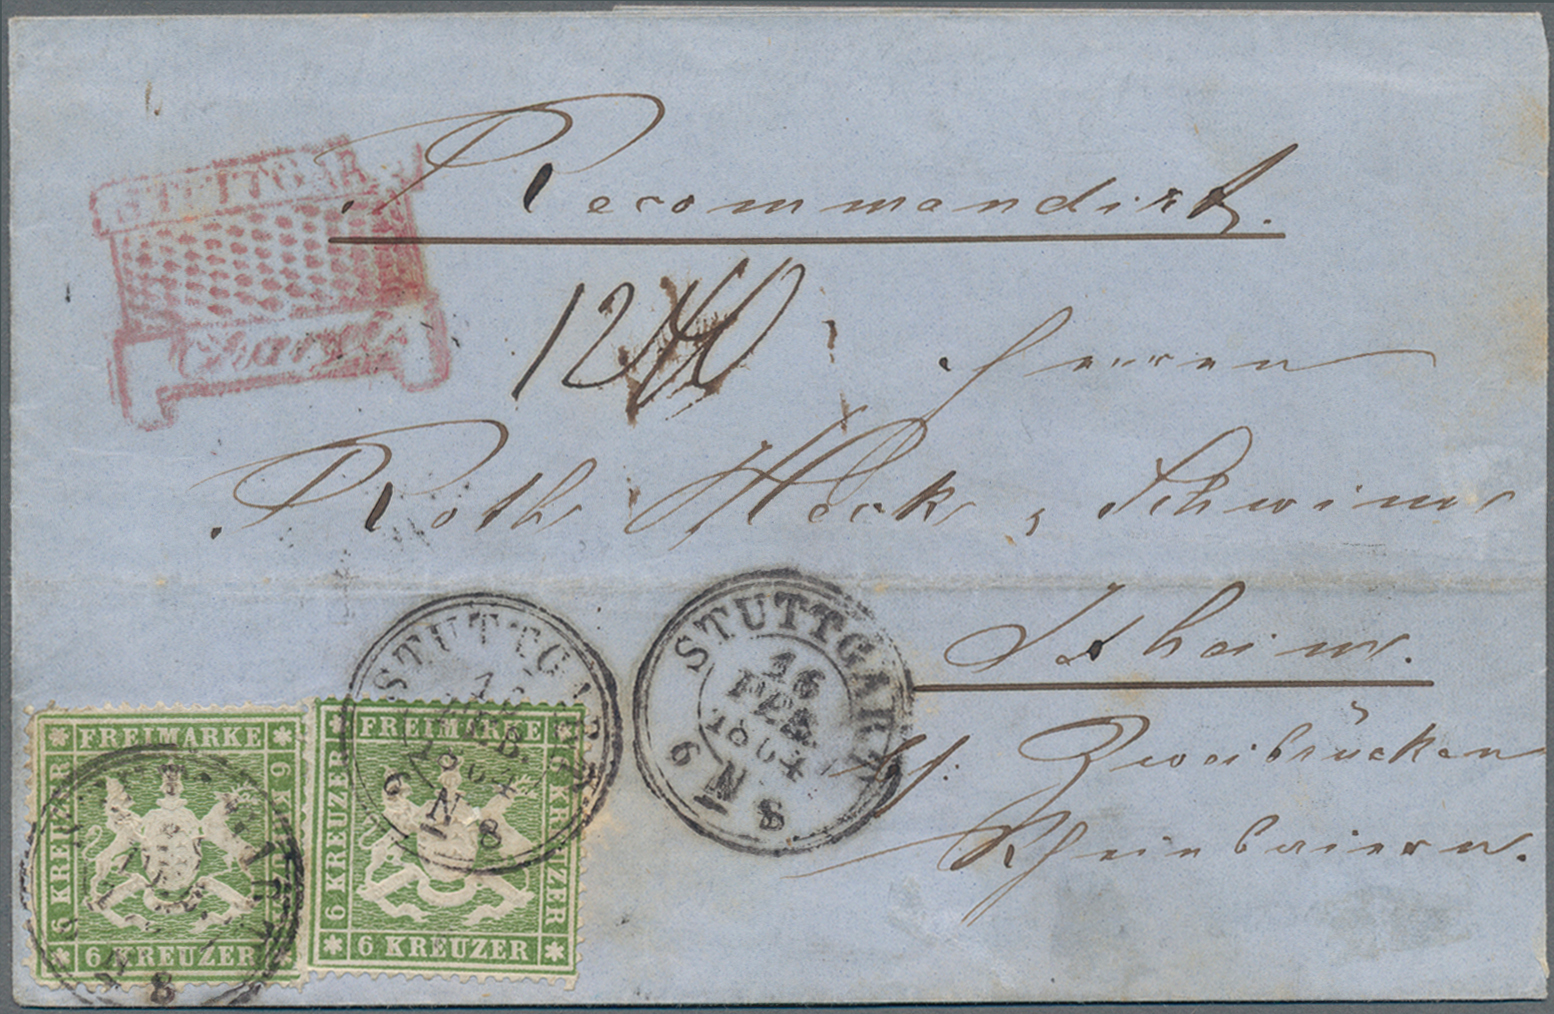 Recommandirt.
STUTTGART
Chargé
Herren
Roth Heck & Schwinn
Ixheim.
b/. Zweibrücken
Rheinbaiern.
STUTTGART
16
FEB
1864
9 N 8
STUTTGART
16
FEB.
1864
9 N 8
FREIMARKE
6 KREUZER
6 KREUZER
6 KREUZER
FREIMARKE
6 KREUZER
6 KREUZER
6 KREUZER